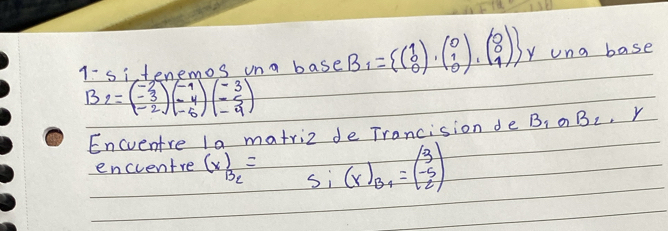 1- si tenemos una base B₁ = {(1 0 0), (0 1 0), (0 0 1)} y una base
B₂ =
Encuentre la matriz de Trancision de B₁ a B₂. y
encuentre (x)B₂ = si (x)B₁ = (3 -5 2)